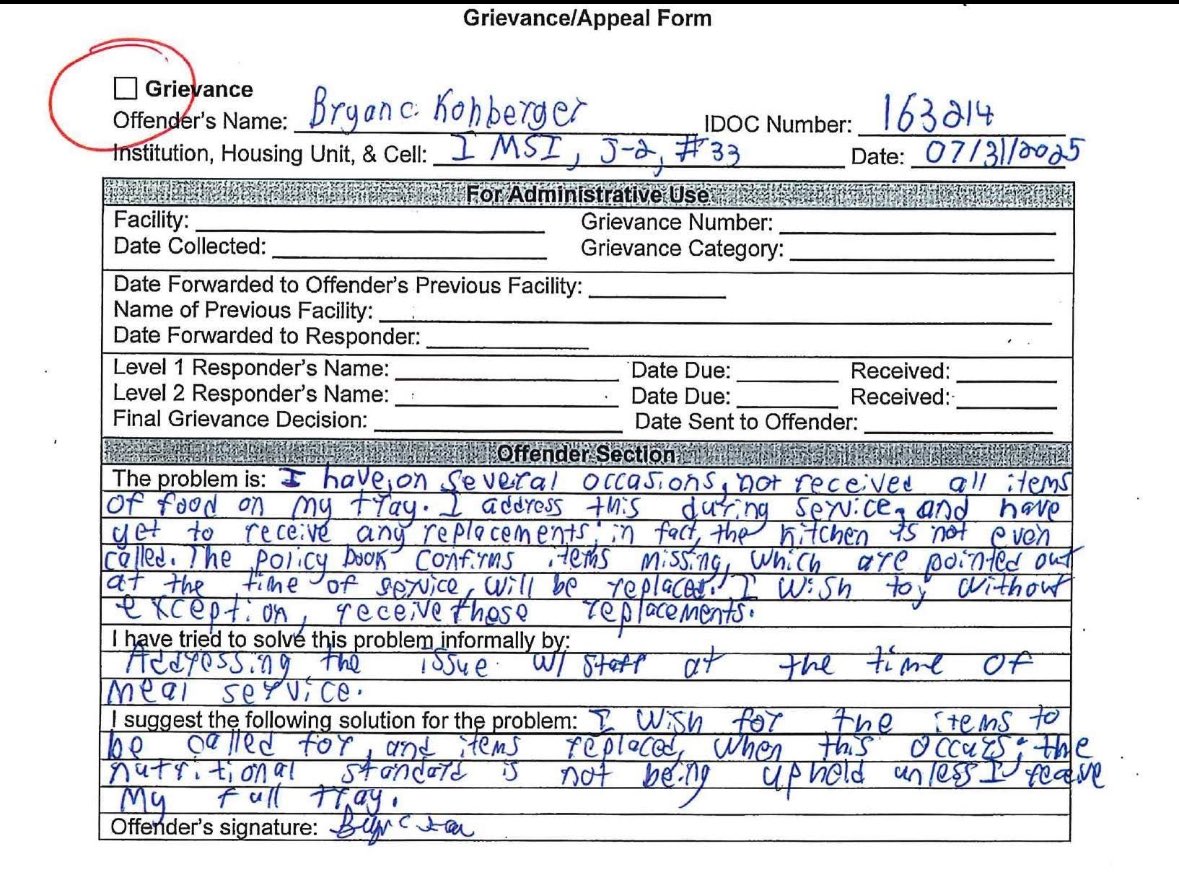 Grievance/Appeal Form
Grievance
Offender's Name: Bryan C. Kohberger IDOC Number: 163214
Institution, Housing Unit, & Cell: IMSI, J-2, #33 Date: 07/31/2025
For Administrative Use
Facility: Grievance Number:
Date Collected: Grievance Category:
Date Forwarded to Offender's Previous Facility:
Name of Previous Facility:
Date Forwarded to Responder:
Level 1 Responder's Name: Date Due: Received:
Level 2 Responder's Name: Date Due: Received:
Final Grievance Decision: Date Sent to Offender:
Offender Section
The problem is: I have, on several occasions, not received all items
of food on my tray. I address this during service, and have
yet to receive any replacements; in fact, the kitchen is not even
called. The policy book confirms items missing, which are pointed out
at the time of service, will be replaced. I wish to, without
exception, receive these replacements.
I have tried to solve this problem informally by:
Addressing the issue w/ staff at the time of
meal service.
I suggest the following solution for the problem: I wish for the items to
be called for, and items replaced, when this occurs; the
nutritional standard is not being upheld unless I receive
my full tray.
Offender's signature: